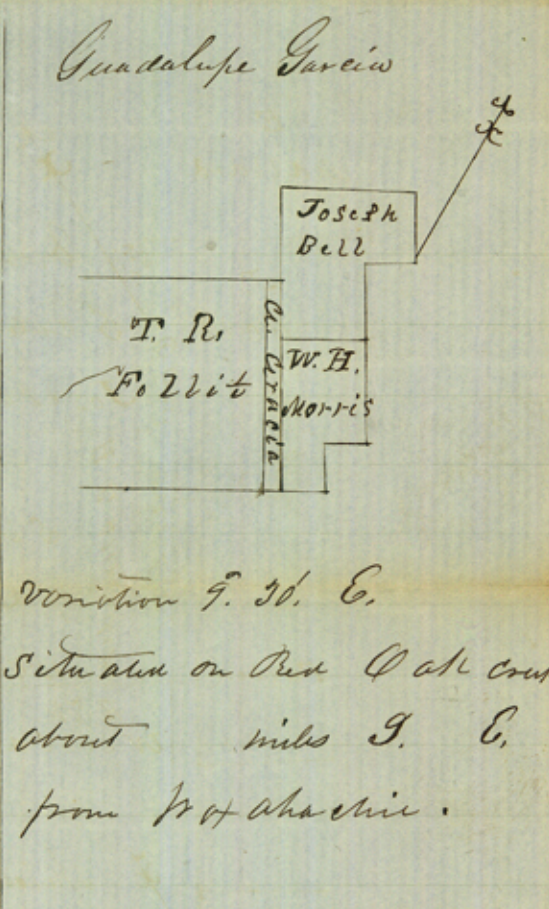 Guadalupe Garcia
Joseph
Bell
T. R.
Follit
G. Gracia
W. H.
Morris
variation 9. 30'. E.
Situated on Red Oak
about miles S. E.
from Waxahachie.